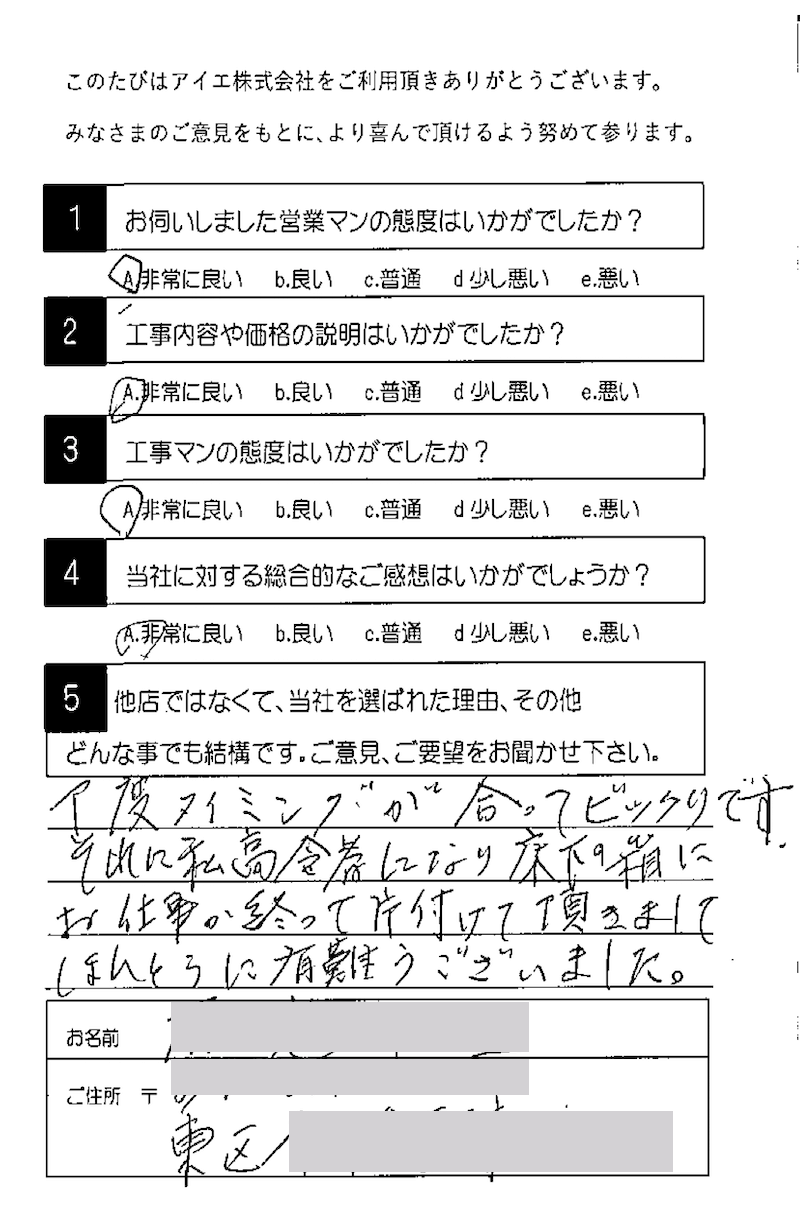 このたびはアイエ株式会社をご利用頂きありがとうございます。
みなさまのご意見をもとに、より喜んで頂けるよう努めて参ります。
1 お伺いしました営業マンの態度はいかがでしたか？
A.非常に良い b.良い c.普通 d少し悪い e.悪い
2 工事内容や価格の説明はいかがでしたか？
A.非常に良い b.良い c.普通 d少し悪い e.悪い
3 工事マンの態度はいかがでしたか？
A.非常に良い b.良い c.普通 d少し悪い e.悪い
4 当社に対する総合的なご感想はいかがでしょうか？
A.非常に良い b.良い c.普通 d少し悪い e.悪い
5 他店ではなくて、当社を選ばれた理由、その他
どんな事でも結構です。ご意見、ご要望をお聞かせ下さい。
丁度タイミングが合ってビックリです.
それに私高令者になり床下の箱に
お仕事が終って片付けて頂きまして
ほんとうに有難うございました。
お名前
ご住所 〒
東区